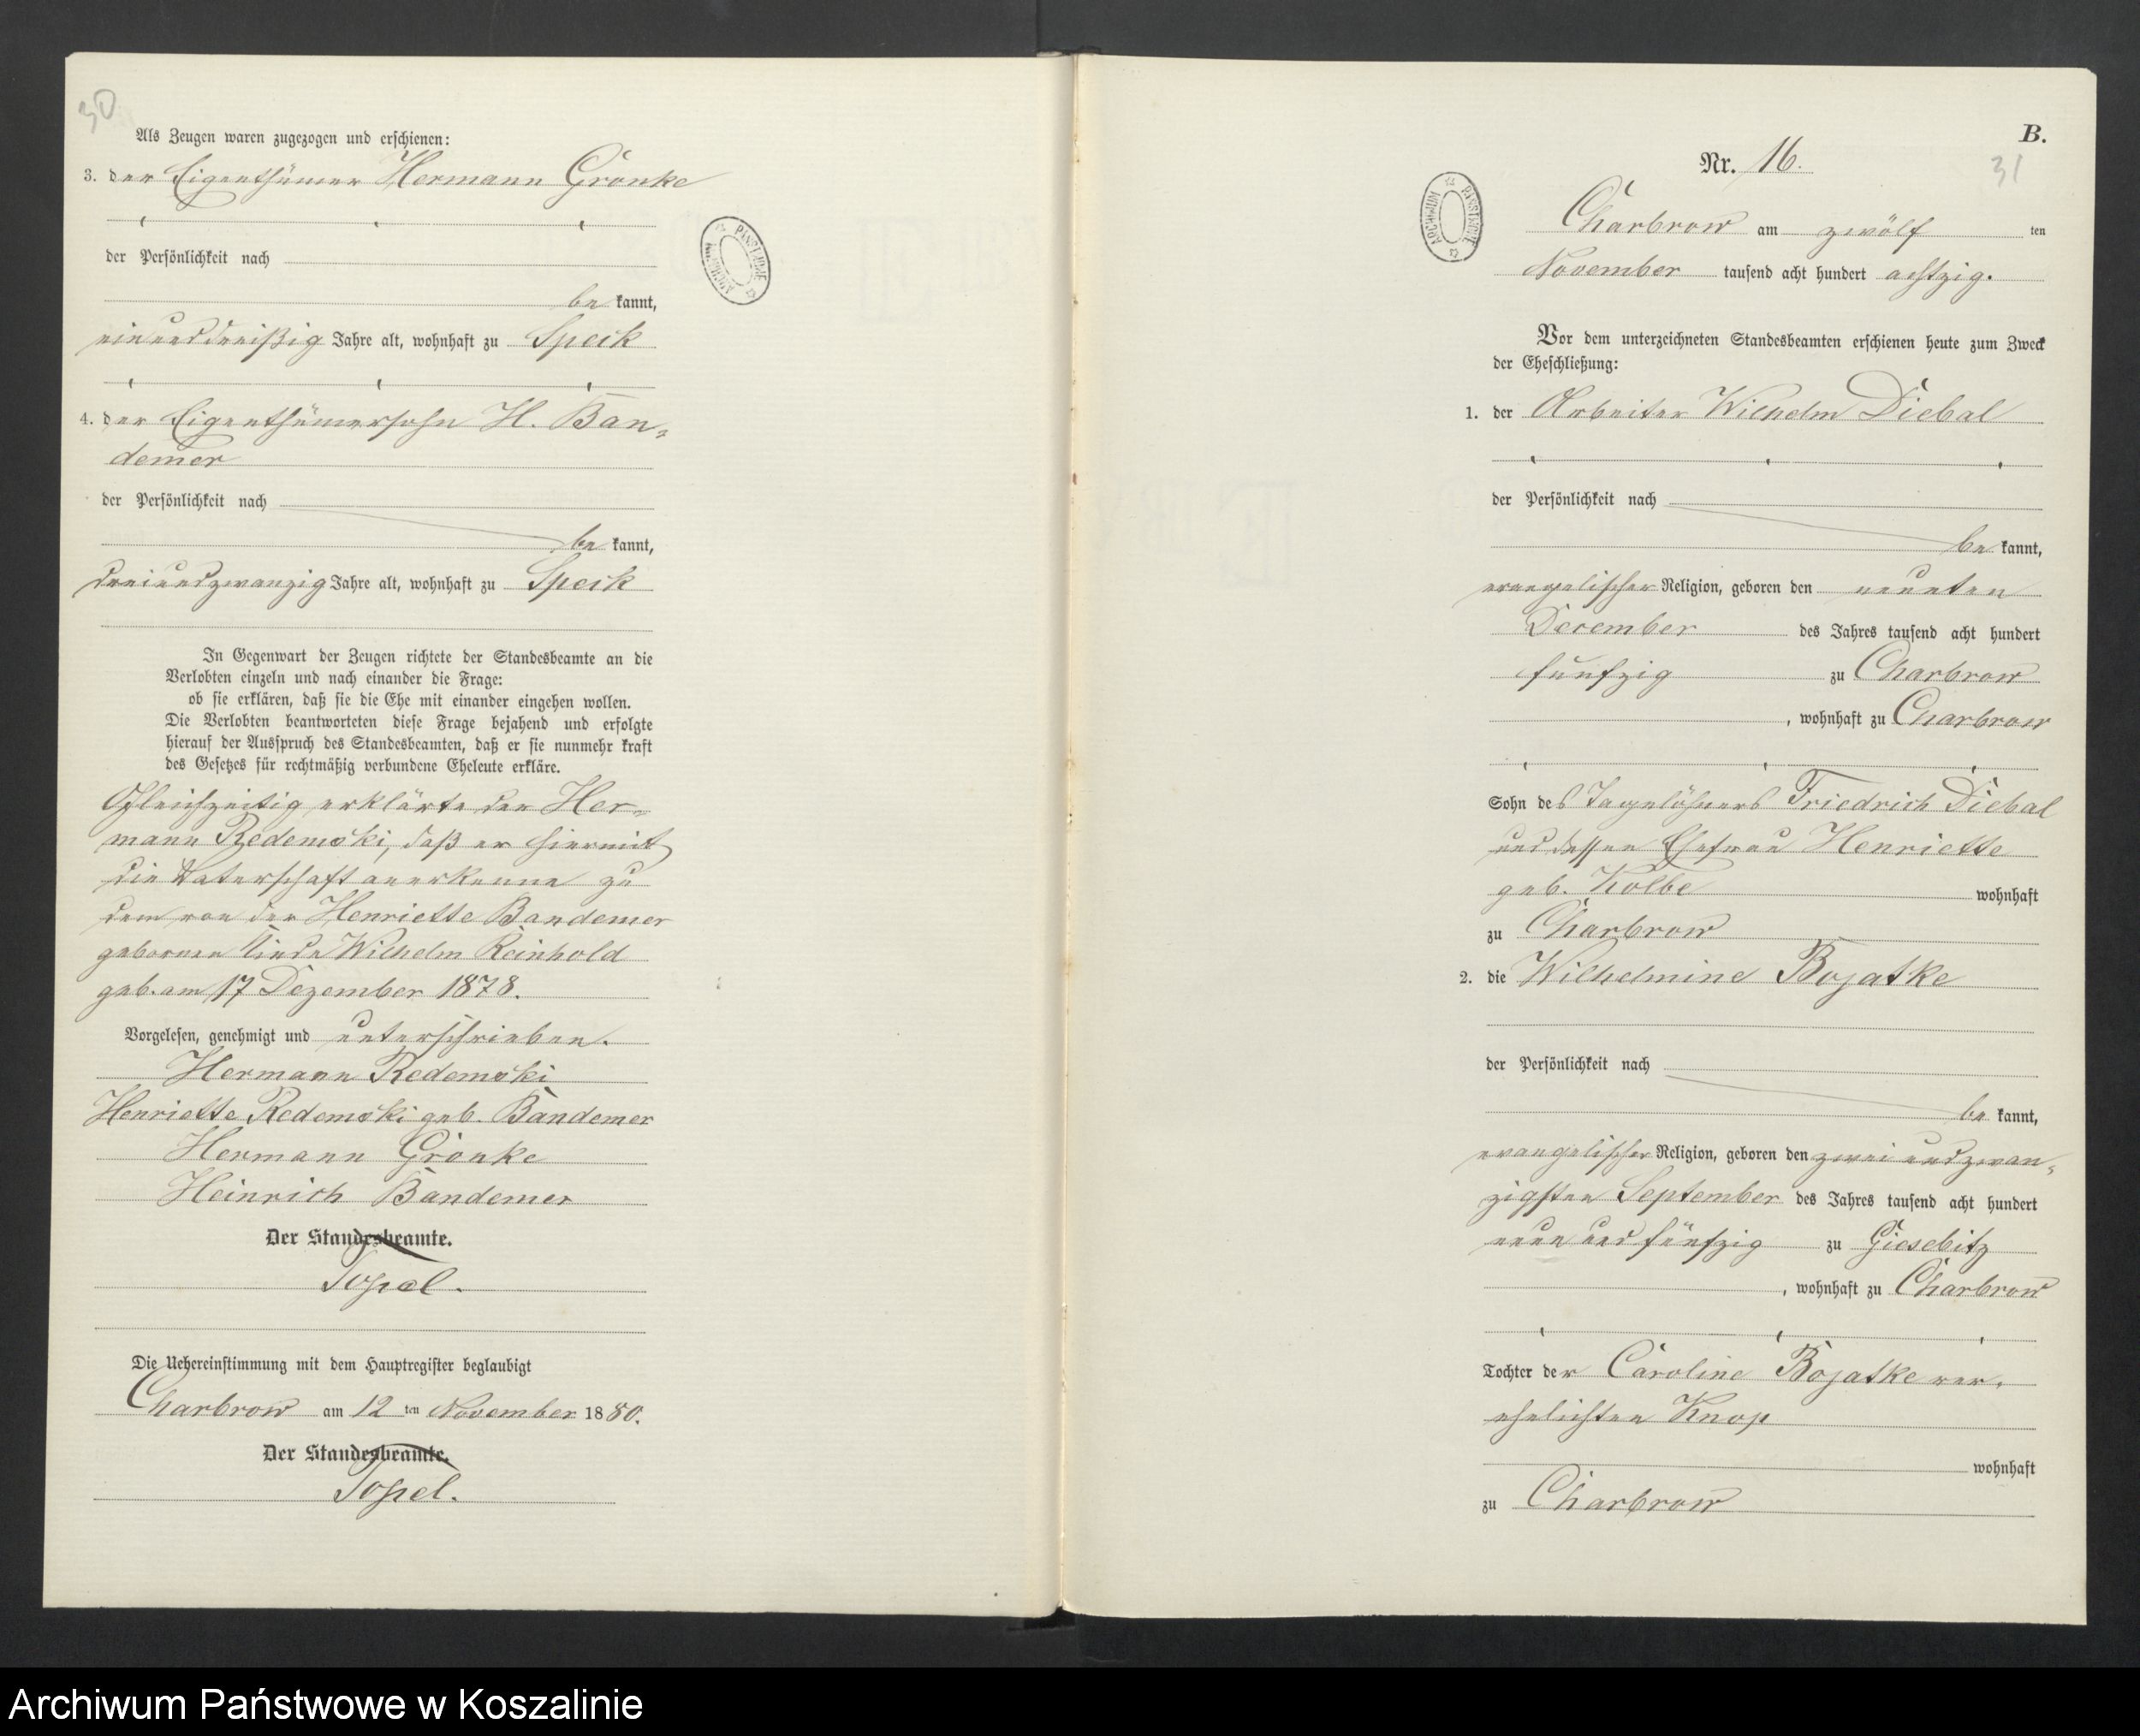 30
Als Zeugen waren zugezogen und erschienen:
3. der Eigenthümer Hermann Grönke
der Persönlichkeit nach
be kannt,
einunddreißig Jahre alt, wohnhaft zu Speck
4. der Eigenthümersohn H. Ban-
demer
der Persönlichkeit nach
be kannt,
dreiundzwanzig Jahre alt, wohnhaft zu Speck
In Gegenwart der Zeugen richtete der Standesbeamte an die
Verlobten einzeln und nach einander die Frage:
ob sie erklären, daß sie die Ehe mit einander eingehen wollen.
Die Verlobten beantworteten diese Frage bejahend und erfolgte
hierauf der Ausspruch des Standesbeamten, daß er sie nunmehr kraft
des Gesetzes für rechtmäßig verbundene Eheleute erkläre.
Gleichzeitig erklärte der Her-
mann Redemski, daß er hiermit
die Vaterschaft anerkenne zu
dem von der Henriette Bandemer
gebornen Kinde Wilhelm Reinhold
geb. am 17 Dezember 1878.
Vorgelesen, genehmigt und unterschrieben.
Hermann Redemski
Henriette Redemski geb. Bandemer
Hermann Grönke
Heinrich Bandemer
Der Standesbeamte.
Topel.
Die Uebereinstimmung mit dem Hauptregister beglaubigt
Charbrow am 12 ten November 1880.
Der Standesbeamte.
Topel.
B.
31
Nr. 16.
ARCHIWUM PAŃSTWOWE
Charbrow am zwölf ten
November tausend acht hundert achtzig.
Vor dem unterzeichneten Standesbeamten erschienen heute zum Zweck
der Eheschließung:
1. der Arbeiter Wilhelm Diebal
der Persönlichkeit nach
be kannt,
evangelischer Religion, geboren den neunten
December des Jahres tausend acht hundert
fünfzig zu Charbrow
, wohnhaft zu Charbrow
Sohn des Tagelöhners Friedrich Diebal
und dessen Ehefrau Henriette
geb. Kolbe wohnhaft
zu Charbrow
2. die Wilhelmine Bojatke
der Persönlichkeit nach
be kannt,
evangelischer Religion, geboren den zwei und zwan-
zigsten September des Jahres tausend acht hundert
neun und fünfzig zu Giesebitz
, wohnhaft zu Charbrow
Tochter der Caroline Bojatke ver-
ehelichten Knop
wohnhaft
zu Charbrow
Archiwum Państwowe w Koszalinie